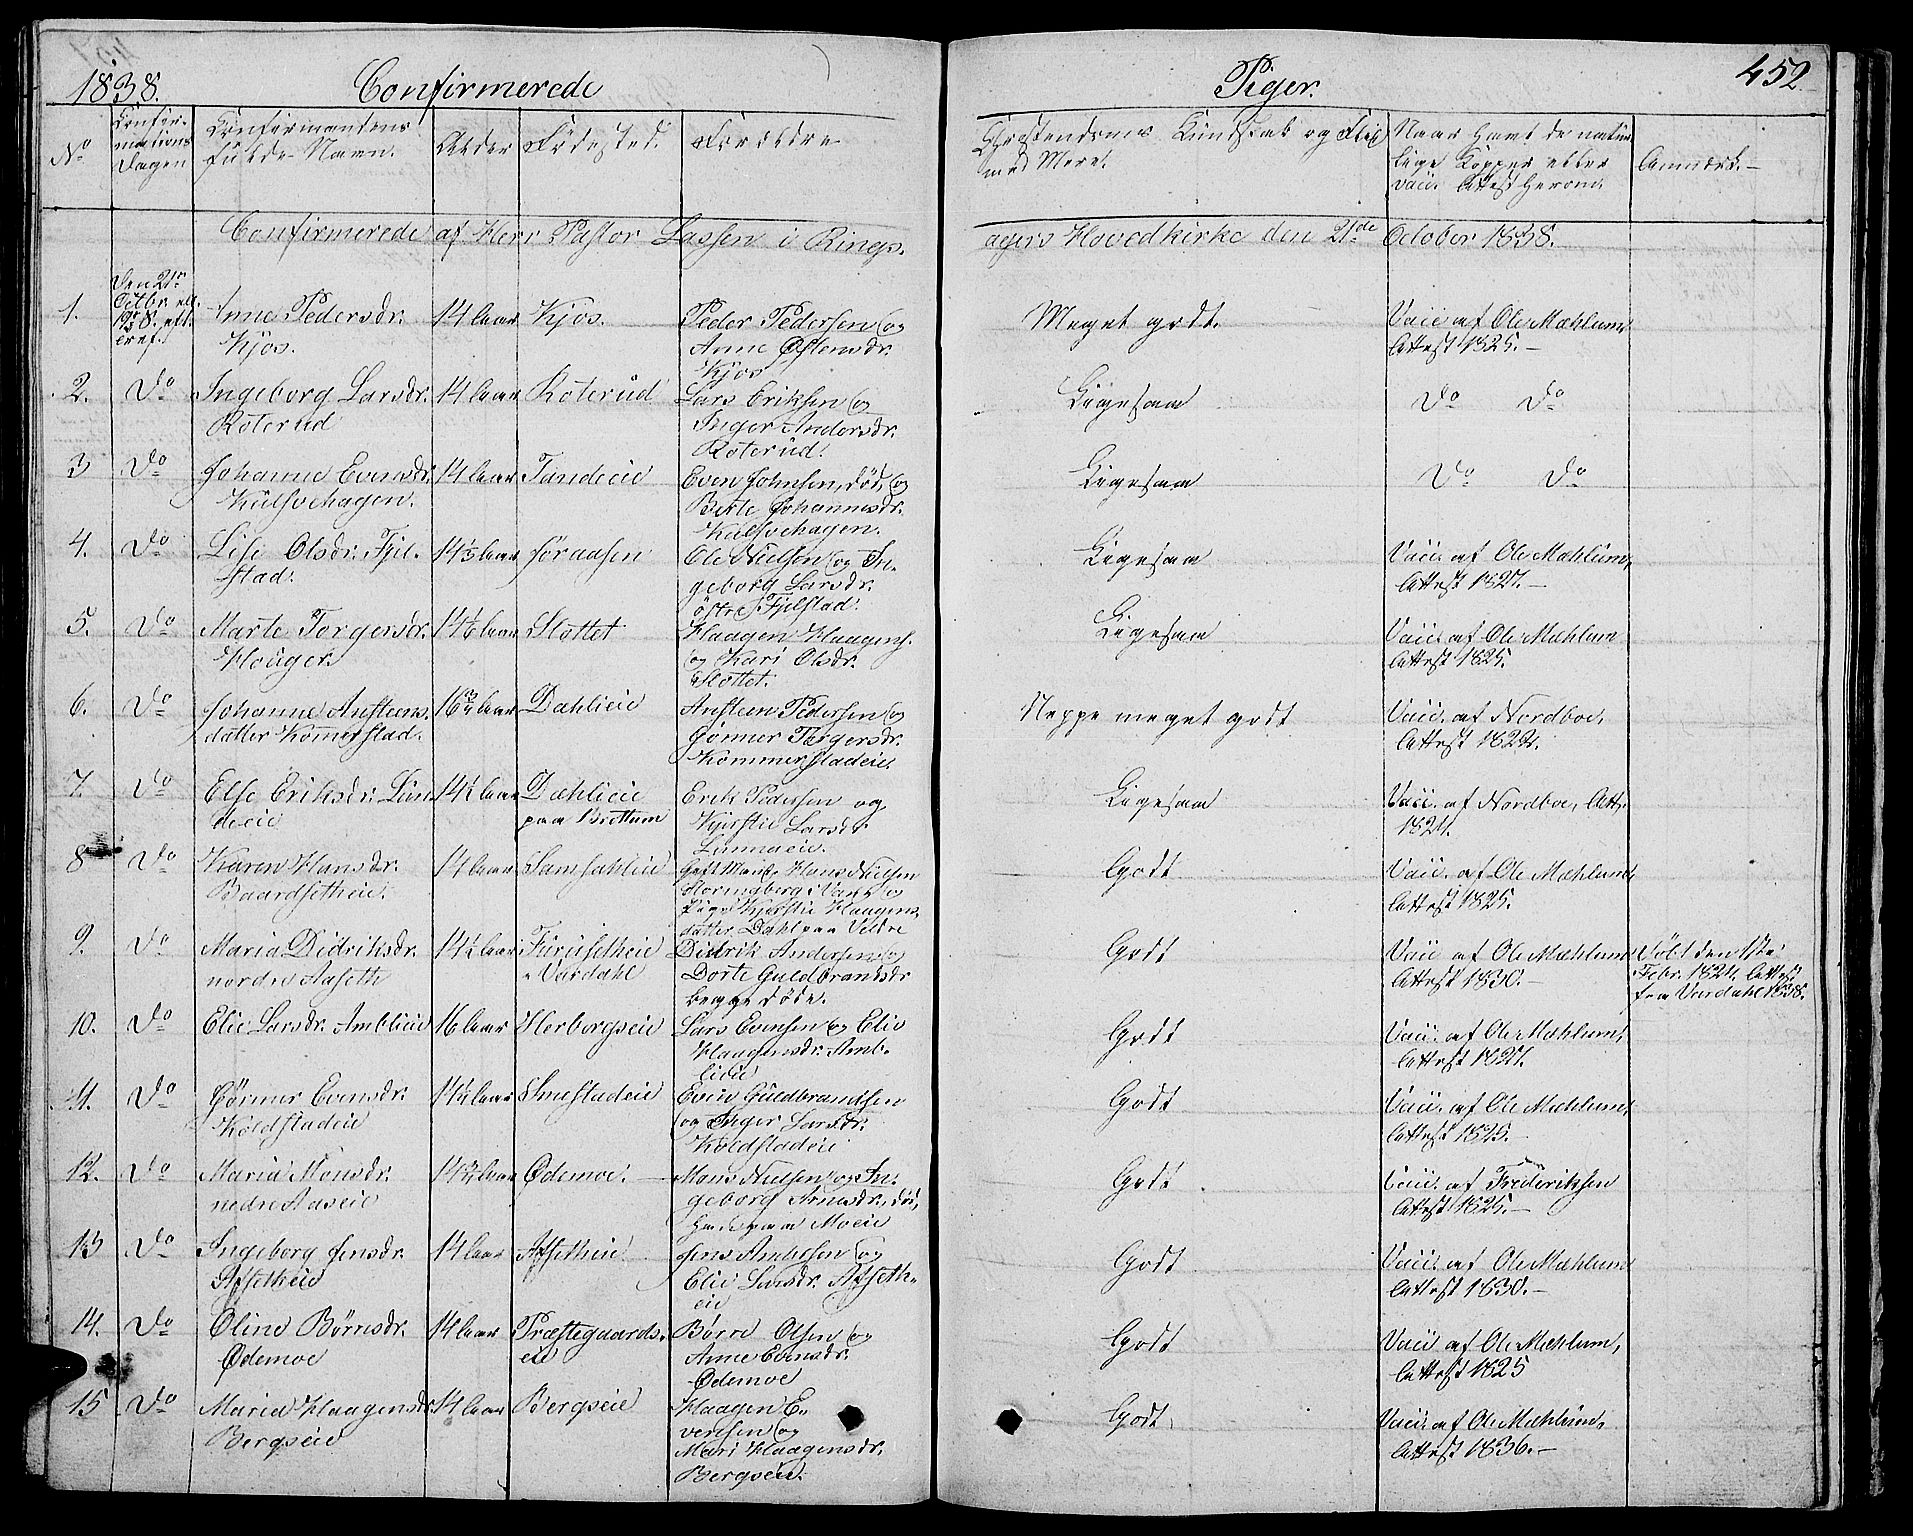 1838. Confirmerede Piger. 452
No
Confir-
mations
Dagen
Confirmandens
fulde Navn.
Alder
Fødested.
Forældre
Christendoms Kundskab og Flid
med Meret.
Naar havt de natur
lige Kopper eller
vacc. Attest herom.
Anmærk.
Confirmerede af Herr Pastor Lassen i Rings- agers Hovedkirke den 21de October 1838.
1. Den 21de Octbr. 1838.
Anne Pedersdr. Kjos.
14 Aar
Kjos.
Peder Pedersen og
Anne Østensdr.
Kjos
Meget godt.
Vacc. af Ole Mæhlum
Attest 1825.-
2. Do
Ingeborg Larsdr.
Roterud
14 Aar
Roterud
Lars Eriksen og
Inger Andersdr.
Roterud.
Ligesaa
Do Do
3 Do
Johanne Evensdr.
Kulsvehagen.
14 Aar
Tandeeie
Even Johnsen, død, og
Berte Johannesdr.
Kulsvehagen.
Ligesaa
Do Do
4. Do
Lisi Olsdr. Fjel-
stad.
Føraasen
Ole Nielsen og In-
geborg Larsdr.
østre Fjelstad.
Ligesaa
Vacc. af Ole Mæhlum,
Attest 1827.-
5. Do
Marte Torgersdr.
Houger.
Slottet
Haagen Haagens.
og Kari Olsdr.
Slottet.
Ligesaa
Vacc. af Ole Mæhlum
Attest 1825.
6. Do
Johanne Ansteens-
datter Komerstad.
16¾ Aar
Dahlieie
Ansteen Pedersen og
Gønner Torgersdr.
Kommerstadeie.
Neppe meget godt
Vacc. af Nordboe,
Attest 1824.
7. Do
Else Eriksdr. Lun
deeie
Dæhlieie
paa Brottum
Erik Pedersen og
Kjerstie Larsdr.
Ligesaa
Vacc. af Nordboe, Att.
1824.
8 Do
Karen Hansdr.
Baardsetheie.
14 Aar
Samsahleie
Gift Mand Hans Nielsen
Stormyberg i Vang og
Pige Kjerstie Haagens-
datter Dahl paa Veldre
Godt
Vacc. af Ole Mæhlum,
Attest 1825.
9. Do
Maria Didriksdr.
nordre Aaseth
14½ Aar
Furusetheie
i Vardahl
Didrik Andersen og
Dorte Guldbrandsdr
begge døde.
Godt
Vacc af Ole Mæhlum
Attest 1830.-
Født den 1ste
Febr. 1824. Attest
fra Vardahl 1838.
10. Do
Elie Larsdr. Amblieie
16 Aar
Herborgseie
Lars Evensen og Elie
Haagensdr. Amb-
lieie
Godt
Vacc. af Ole Mæhlum,
Attest 1824.
11. Do
Gønner Evensdr.
Koldstadeie
14½ Aar
Smestadeie
Even Guldbrandsen
og Inger Larsdr.
Koldstadeie
Godt
Vacc. af Ole Mæhlum,
Attest 1825.-
12. Do
Maria Monsdr.
nedre Aaseie
14¾ Aar
Ødemoe.
Mons Nielsen og In-
geborg Arnesdr. død,
han paa Moeie
Godt
Vacc. af Frederiksen
Attest 1825.-
13 Do
Ingeborg Jensdr.
Afsetheie
14 Aar
Afsetheie
Jens Andersen og
Elie Larsdr. Afseth-
eie
Godt
Vacc. af Ole Mæhlum
Attest 1830.-
14. Do
Oline Børresdr.
Ødemoe
14 Aar
Præstegaards-
eie
Børre Olsen og
Anne Evensdr.
Ødemoe
Godt
Vacc af Ole Mæhlum,
Attest 1825
15 Do
Maria Haagensdr.
Bergseie
14 Aar
Bergseie
Haagen E-
vensen og
Mari Haagensdr.
Bergseie.
Godt
Vacc. af Ole Mæhlum,
Attest 1836.-